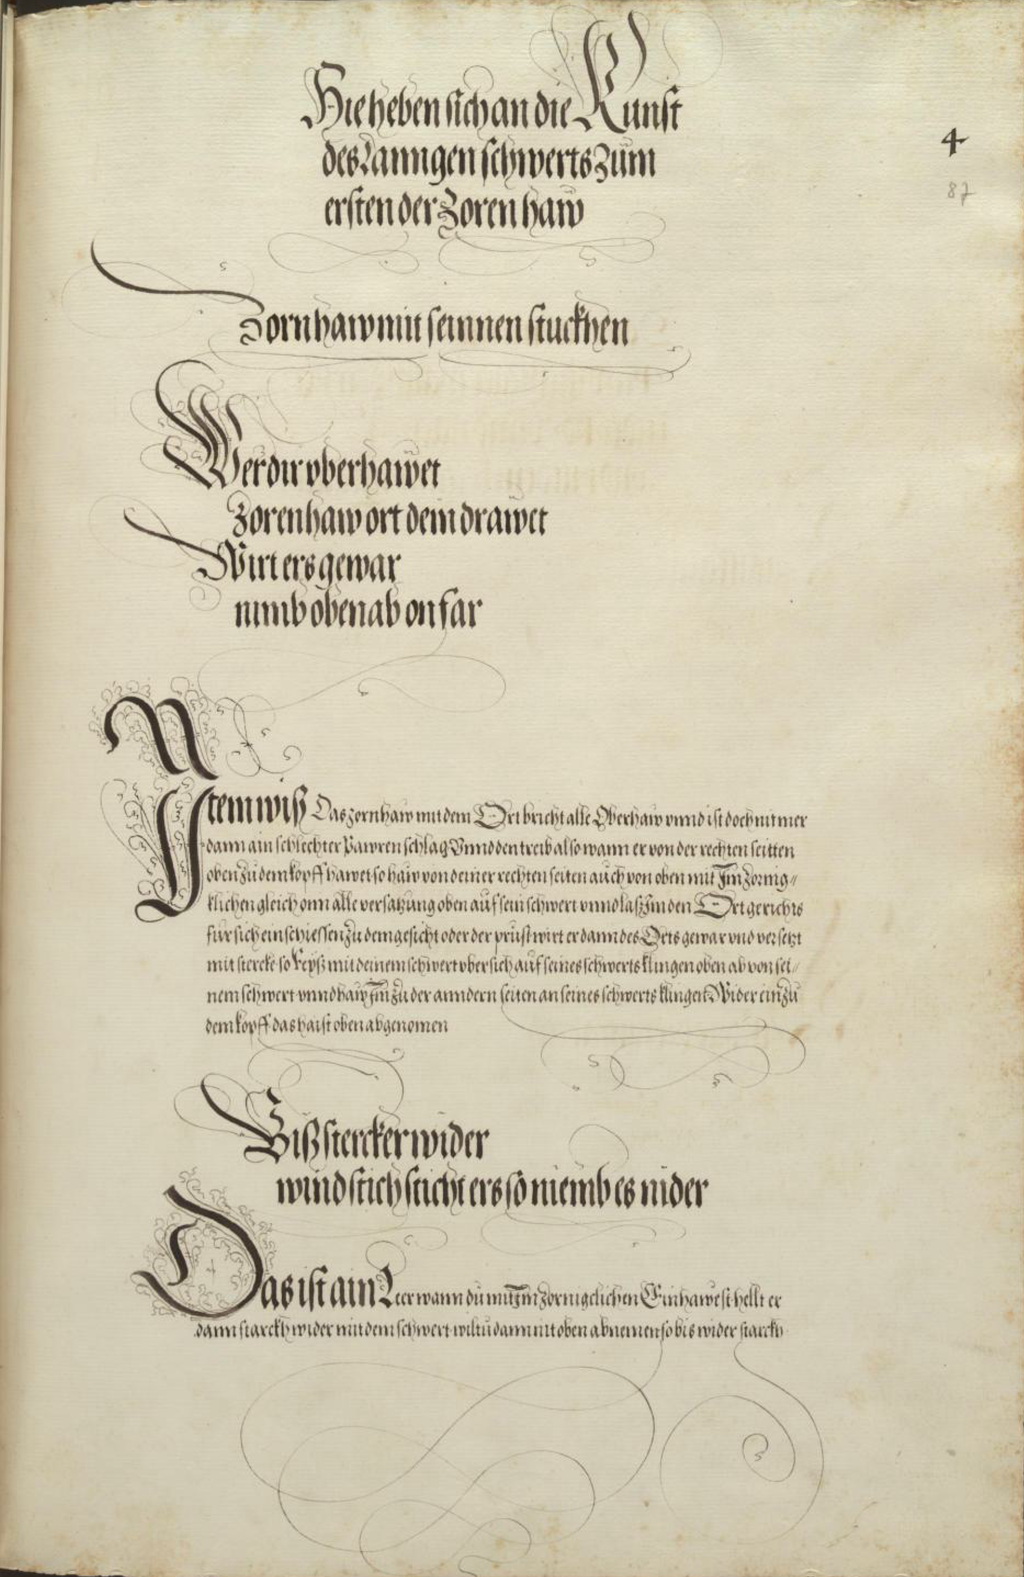 Hie heben sich an die Kunst
4
des Lanngen schwerts Zům
87
ersten der Zoren haw
Zorn haw mit seinnen stuckhen
Wer dir oberhawet
Zoren haw ort dem drawet
Wirt ers gewar
nimb oben ab on far
Ytem wiß Das zornhaw mit dem Ort bricht alle Oberhaw vnnd ist doch nit mer
dann ain schlechter Pawren schlag Vnnd den treib also wann er von der rechten seitten
oben zů dem kopff hawet so haw von deiner rechten seiten auch von oben mit Im zornig-
klichen gleich onn alle versatzung oben aůf sein schwert vnnd laß Im den Ort gerichts
für sich einschiessen zů dem gesicht oder der prüst wirt er dann des Orts gewar vnd versetzt
mit stercke so Reyß mit deinem schwert vbersich auf seines schwerts klingen oben ab von sei-
nem schwert vnnd haw Im zů der anndern seiten an seines schwerts klingen Wider ein zů
dem kopff das haist oben abgenomen
Biß stercker wider
wind stich sticht ers so niemb es nider
Das ist ain Leer wann dů mit Im zornigclichen Einhawest hellt er
dann starckh wider mit dem schwert wiltu dann nit oben abnemen so bis wider starckh